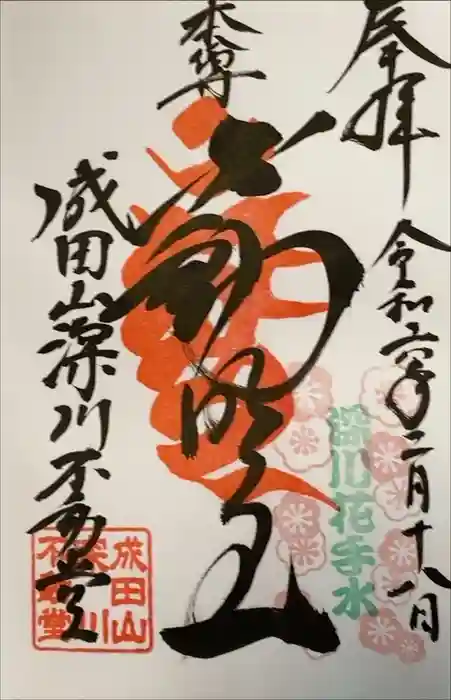 奉拝
令和六年二月十八日
本尊
不動明王
成田山深川不動堂
深川花手水
成田山
深川
不動堂